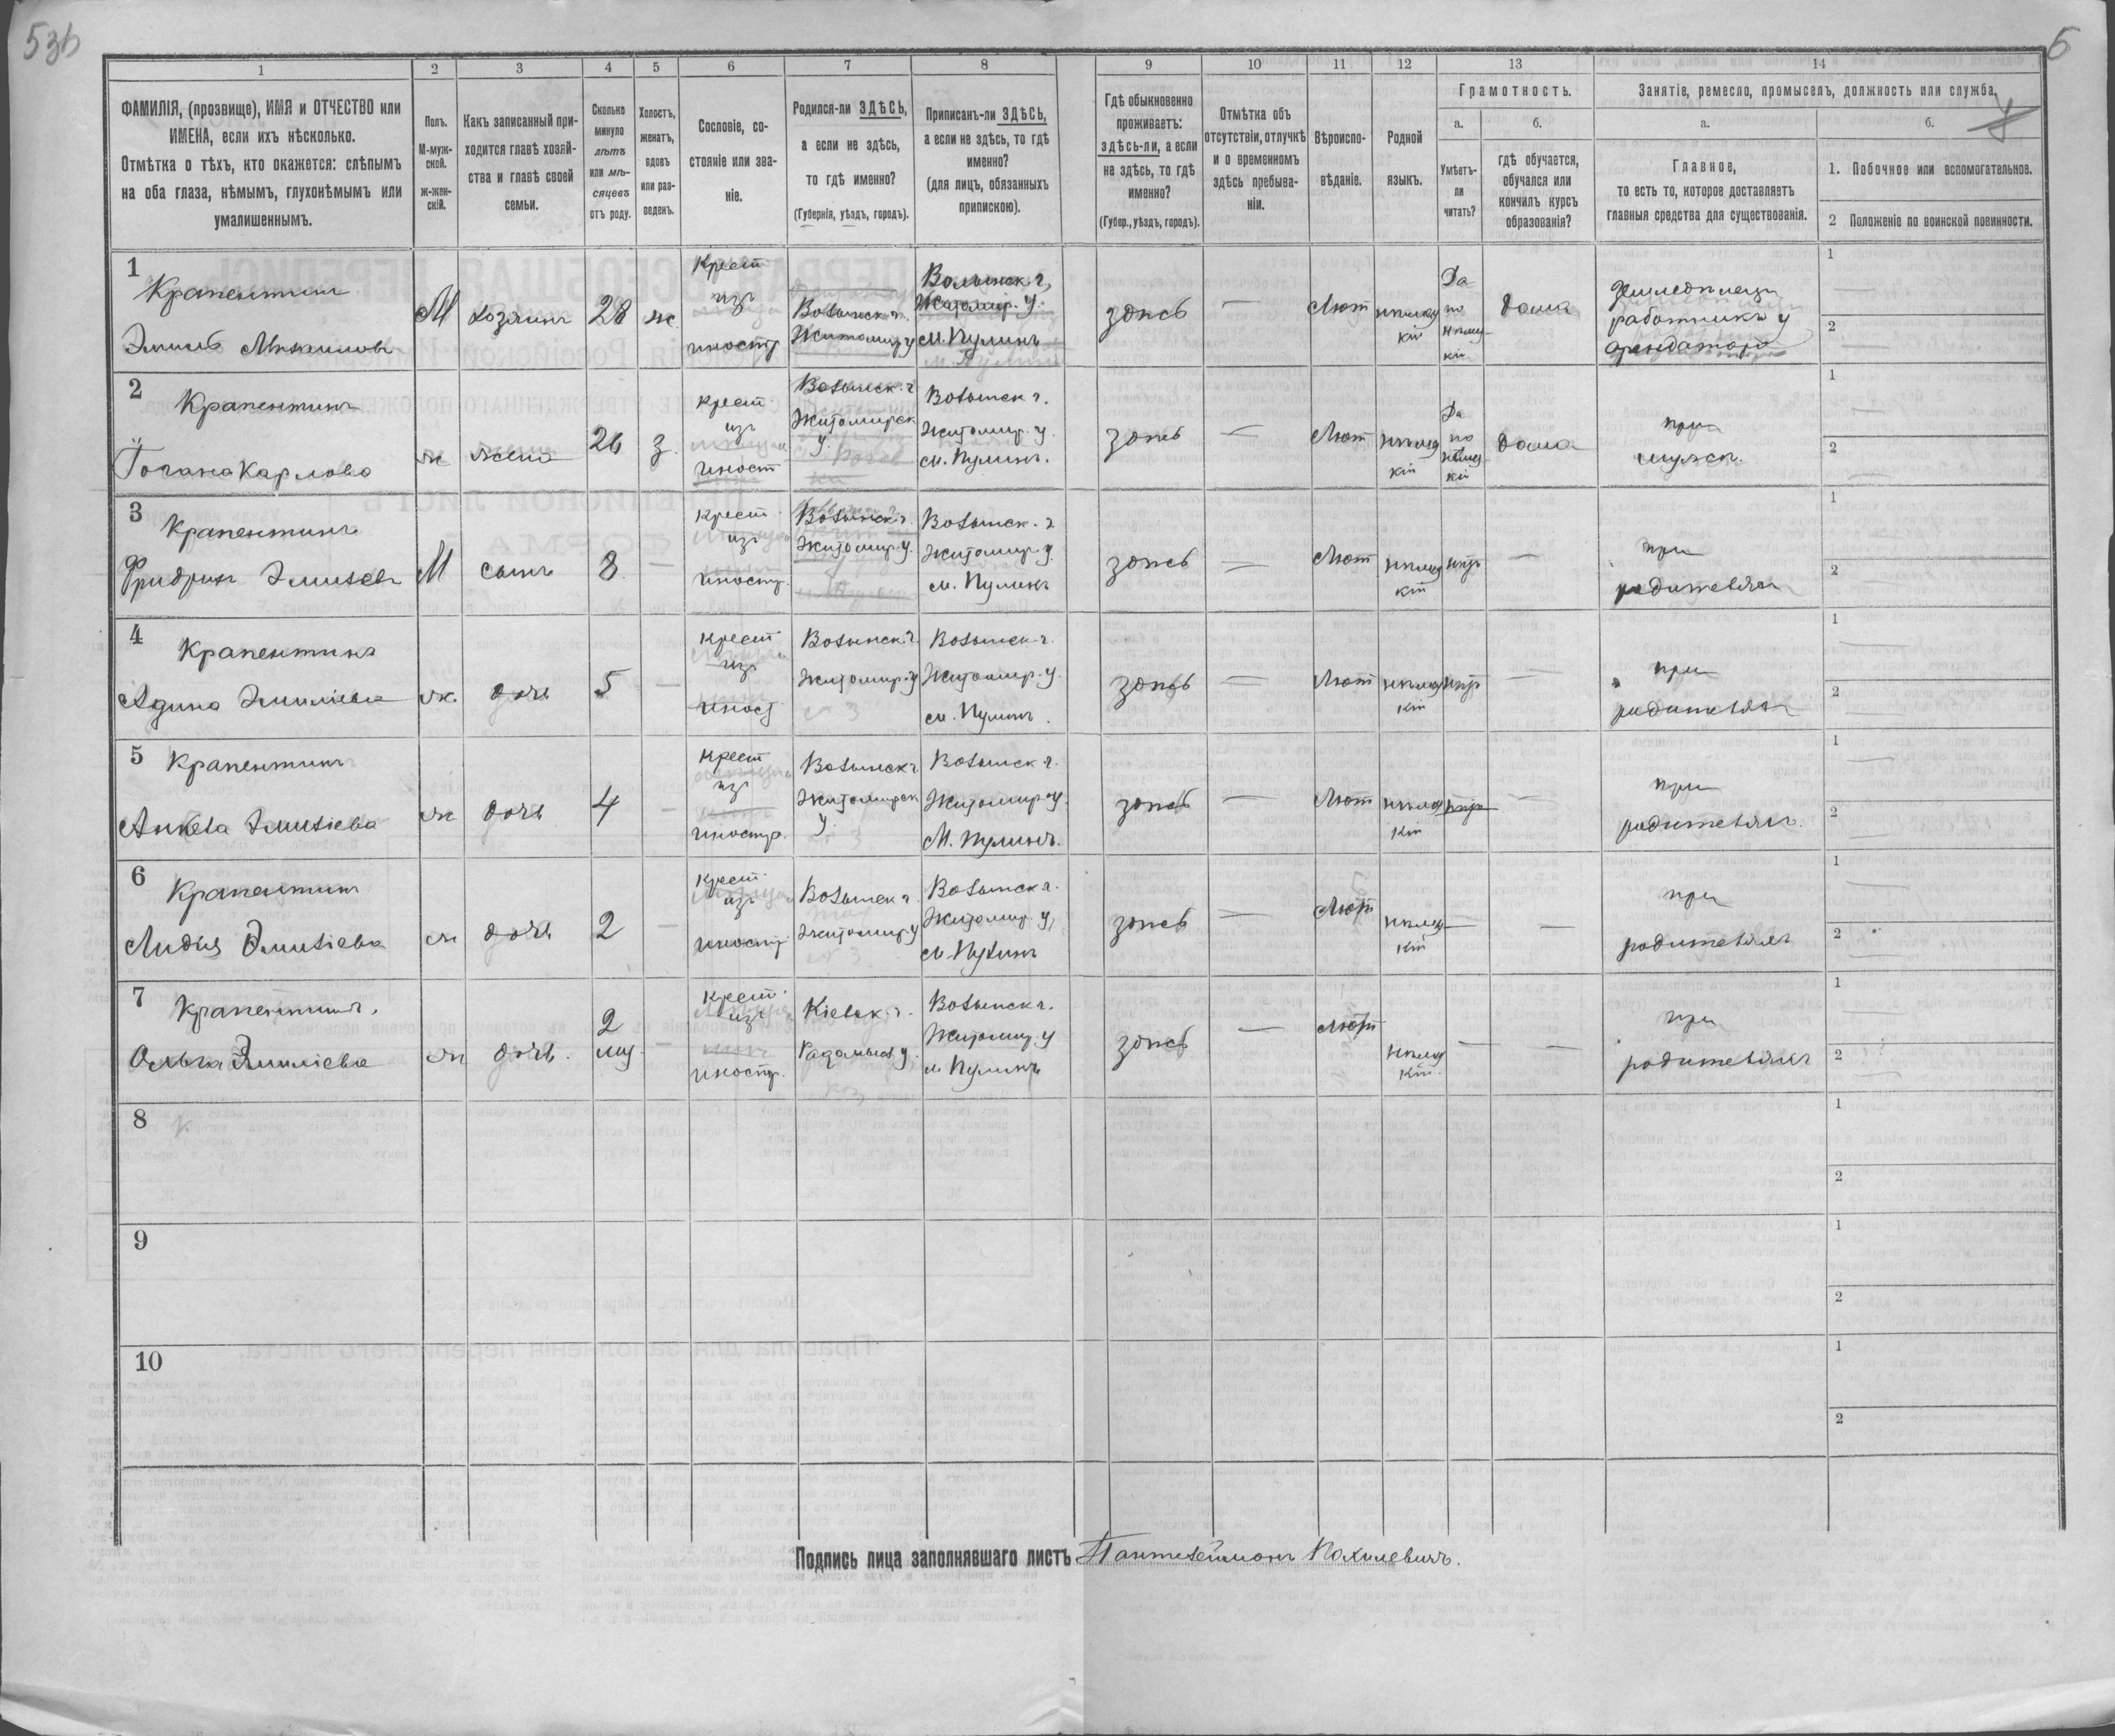 53ь
6
1
2
3
4
5
6
7
8
9
10
11
12
13
14
ФАМИЛІЯ, (прозвище), ИМЯ и ОТЧЕСТВО или
ИМЕНА, если ихъ нѣсколько.
Отмѣтка о тѣхъ, кто окажется: слѣпымъ
на оба глаза, нѣмымъ, глухонѣмымъ или
умалишеннымъ.
Полъ.
М-муж-
ской.
ж-жен-
скій.
Какъ записанный при-
ходится главѣ хозяй-
ства и главѣ своей
семьи.
Сколько
минуло
лѣтъ
или мѣ-
сяцевъ
отъ роду.
Холостъ,
женатъ,
вдовъ
или раз-
веденъ.
Сословіе, со-
стояніе или зва-
ніе.
Родился-ли ЗДѢСЬ,
а если не здѣсь,
то гдѣ именно?
(Губернія, уѣздъ, городъ).
Приписанъ-ли ЗДѢСЬ,
а если не здѣсь, то гдѣ
именно?
(для лицъ, обязанныхъ
припискою).
Гдѣ обыкновенно
проживаетъ:
здѣсь-ли, а если
не здѣсь, то гдѣ
именно?
(Губер., уѣздъ, городъ).
Отмѣтка объ
отсутствіи, отлучкѣ
и о временномъ
здѣсь пребыва-
ніи.
Вѣроиспо-
вѣданіе.
Родной
языкъ.
Грамотность.
а.
Умѣетъ-
ли
читать?
б.
гдѣ обучается,
обучался или
кончилъ курсъ
образованія?
Занятіе, ремесло, промыселъ, должность или служба.
а.
Главное,
то есть то, которое доставляетъ
главныя средства для существованія.
б.
1. Побочное или вспомогательное.
2 Положеніе по воинской повинности.
1
Крапентинъ
Эмиль Михаиловъ
М
хозяинъ
28
ж
Крест
изъ
иностр
Волынск. г.
Житомир у
Волынск. г,
Житомир. у.
м. Пулинъ
здѣсь
—
Лют
нѣмец
кій
Да
по
нѣмец
кій
дома
работникъ у
арендатора
1
2
2
Крапентинъ
Карлова
ж
жена
26
з.
крест.
изъ
иност
Волынск. г
Житомирск
у.
Волынск г.
Житомир. у.
м. Пулинъ.
здѣсь
—
Лют
нѣмец
кій
Да
по
нѣмец
кій
дома
при
мужѣ.
1
2
3
Крапентинъ
Фридрих Эмильевъ
М
сынъ
8
—
крест.
изъ
иностр.
Волынск. г.
Житомир. у.
Волынск. г
Житомир. у
м. Пулинъ
здѣсь
—
Лют
нѣмец
кій
нѣтъ
—
при
родителяхъ
1
2
4
Крапентинъ
Эмиліева
ж.
дочь
5
—
крест
изъ
иност
Волынск. г.
Житомир. у
Волынск. г.
Житомир. у.
м. Пулинъ.
здѣсь
—
Лют
нѣмец
кій
нѣтъ
—
при
родителяхъ
1
2
5
Крапентинъ
Эмиліева
ж
дочь
4
—
Крест
изъ
иностр.
Волынск г
Житомирск
у.
Волынск г.
Житомир у.
М. Пулинъ.
здѣсь
—
Лют
нѣмец
кій
нѣтъ
—
при
родителяхъ.
1
2
6
Крапентинъ
Лидія Эмиліева
ж
дочь
2
—
Крест.
изъ
иностр
Волынск г.
Житомир у
Волынск г.
Житомир. у,
м. Пулинъ
здѣсь
—
Лют
нѣмец
кій
—
—
при
родителяхъ
1
2
7
Крапентинъ.
Ольга Эмиліева
ж
дочь.
2
мц
—
крест.
изъ
иностр.
Кіевск. г.
Радомысл. у.
Волынск г.
Житомир. у
м Пулинъ
здѣсь
—
Лют
нѣмец
кій.
—
—
при
родителяхъ
1
2
8
1
2
9
1
2
10
1
2
Подпись лица заполнявшаго листъ Пантелеймонъ Похилевичъ.